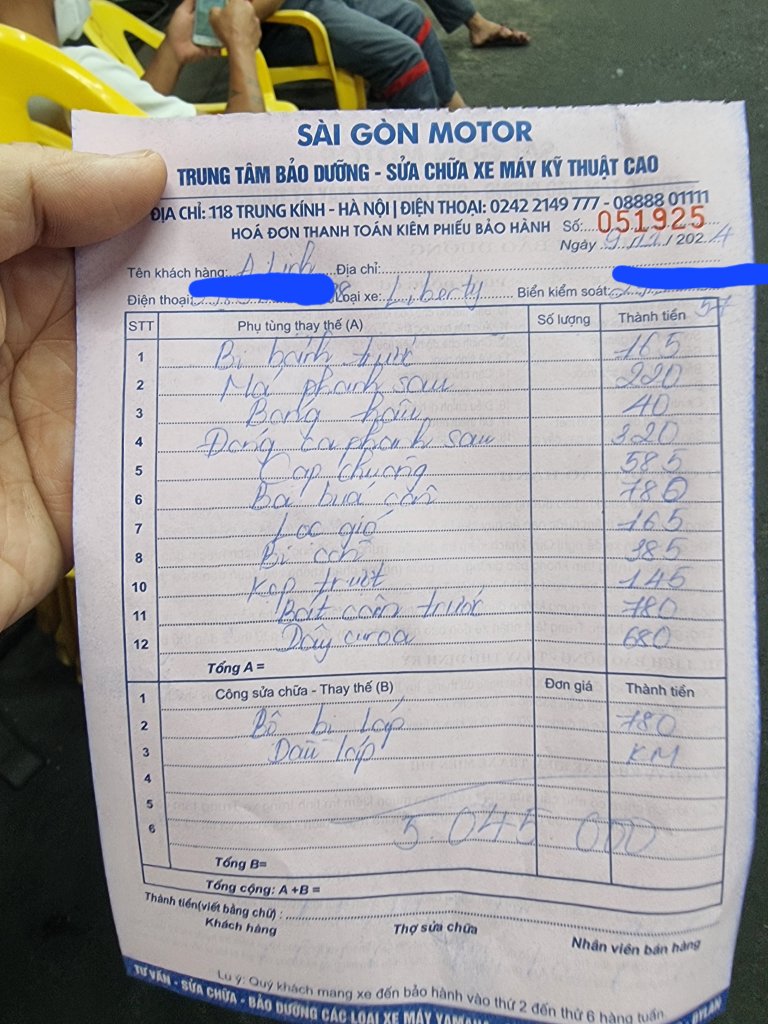 SÀI GÒN MOTOR
TRUNG TÂM BẢO DƯỠNG - SỬA CHỮA XE MÁY KỸ THUẬT CAO
ĐỊA CHỈ: 118 TRUNG KÍNH - HÀ NỘI | ĐIỆN THOẠI: 0242 2149 777 - 08888 01111
HOÁ ĐƠN THANH TOÁN KIÊM PHIẾU BẢO HÀNH Số: 051925
Ngày 9/12/2024
Tên khách hàng: A Linh Địa chỉ:
Điện thoại: Loại xe: Liberty Biển kiểm soát:
STT Phụ tùng thay thế (A) Số lượng Thành tiền
1 Bi bánh trước 165
2 Má phanh sau 220
3 Bóng hậu 40
4 Đóng ca phanh sau 320
5 Cap chuông 585
6 Ba búa côn 780
7 Lọc gió 165
8 Bi côn 385
10 Kẹp trượt 145
11 Bát côn trước 780
12 Dây curoa 680
Tổng A =
1 Công sửa chữa - Thay thế (B) Đơn giá Thành tiền
2 Bộ bi láp 780
3 Dầu láp KM
4
5
6 5.045.000
Tổng B=
Tổng cộng: A +B =
Thành tiền(viết bằng chữ) :
Khách hàng Thợ sửa chữa Nhân viên bán hàng
Lu ý: Quý khách mang xe đến bảo hành vào thứ 2 đến thứ 6 hàng tuần
TƯ VẤN - SỬA CHỮA - BẢO DƯỠNG CÁC LOẠI XE MÁY DYLAN